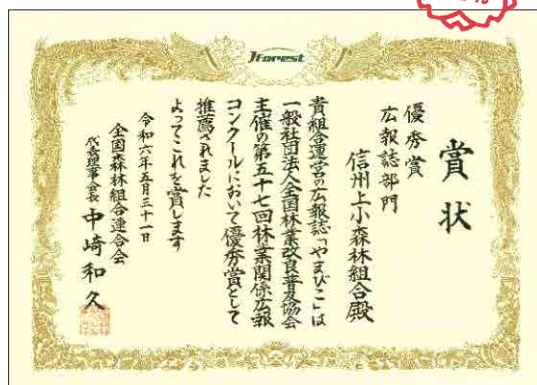 JForest
賞状
優秀賞
広報誌部門
信州上小森林組合殿
貴組合運営の広報誌「やまびこ」は
一般社団法人全国林業改良普及協会
主催の第五十七回林業関係広報
コンクールにおいて優秀賞として
推薦されました
よってこれを賞します
令和六年五月三十一日
全国森林組合連合会
代表理事会長 中崎和久